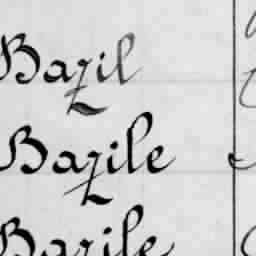 Bazil
Bazile
Bazile